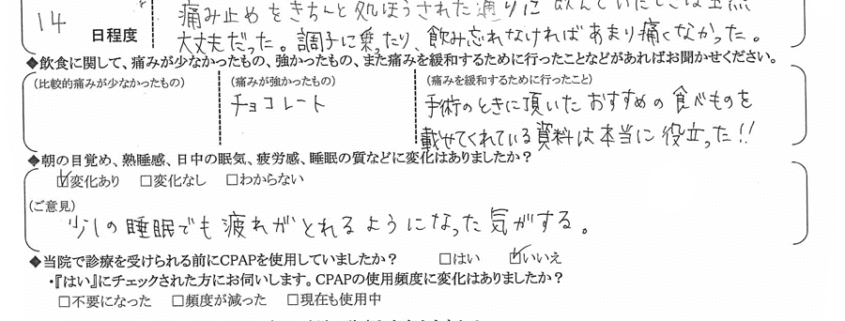 痛み止めをきちんと処ほうされた通りに飲んでいたときは
14 日程度
大丈夫だった。調子に乗ったり、飲み忘れなければあまり痛くなかった。
◆飲食に関して、痛みが少なかったもの、強かったもの、また痛みを緩和するために行ったことなどがあればお聞かせください。
(比較的痛みが少なかったもの) (痛みが強かったもの) (痛みを緩和するために行ったこと)
チョコレート 手術のときに頂いたおすすめの食べものを
載せてくれている資料は本当に役立った!!
◆朝の目覚め、熟睡感、日中の眠気、疲労感、睡眠の質などに変化はありましたか?
☑変化あり □変化なし □わからない
(ご意見)
少しの睡眠でも疲れがとれるようになった気がする。
◆当院で診療を受けられる前にCPAPを使用していましたか? □はい ☑いいえ
・『はい』にチェックされた方にお伺いします。CPAPの使用頻度に変化はありましたか?
□不要になった □頻度が減った □現在も使用中